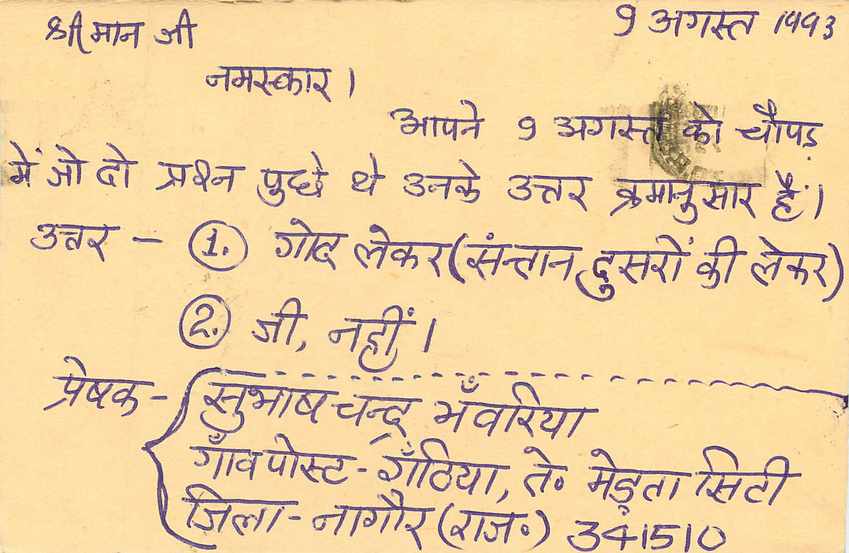 श्रीमान जी
9 अगस्त 1993
नमस्कार।
आपने 9 अगस्त को चौपड़
में जो दो प्रश्न पुछे थे उनके उत्तर क्रमानुसार हैं।
उत्तर - 1. गोद लेकर (संन्तान दुसरों की लेकर)
2. जी, नहीं।
प्रेषक - सुभाष चन्द्र भँवरिया
गाँव पोस्ट - गँठिया, ते॰ मेड़ता सिटी
जिला - नागौर (राज॰) 341510